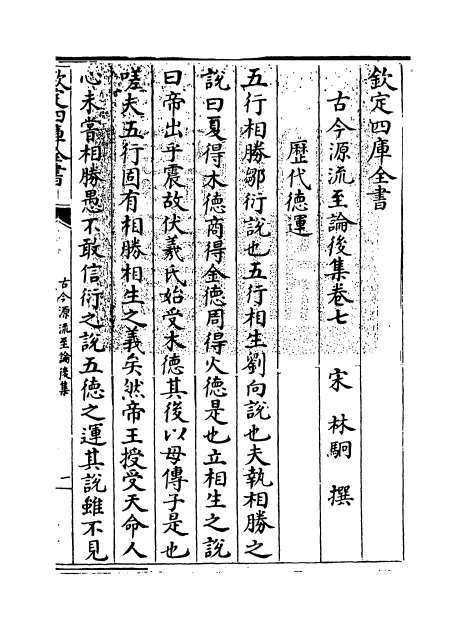 欽定四庫全書
古今源流至論後集卷七
宋 林駉 撰
歷代德運
五行相勝鄒衍說也五行相生劉向說也夫執相勝之
說曰夏得木德商得金德周得火德是也立相生之說
曰帝出乎震故伏羲氏始受木德其後以母傳子是也
嗟夫五行固有相勝相生之義矣然帝王授受天命人
心未嘗相勝愚不敢信衍之說五德之運其說雖不見
欽定四庫全書
古今源流至論後集